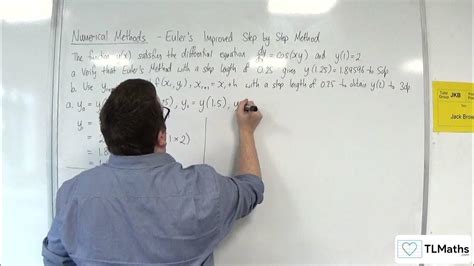 Numerical Methods - Euler's Improved Step by Step Method
The function y(x) satisfies the differential equation dy/dx = cos(xy) and y(1)=2
a. Verify that Euler's Method with a step length of 0.25 gives y(1.25)=1.89596 to 5dp
b. Use f(x₁, y₁), x = x + h with a step length of 0.25 to obtain y(2) to 3dp
a. y₀ = y 25), = y(1.5),
y =
=
= 1.8
1×2)
Tutor
Group
JKB
Jack Brow
TLMaths